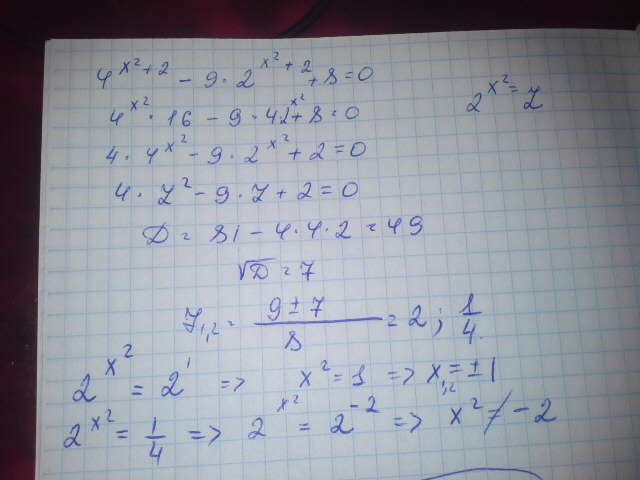 4^(x²+2) - 9 · 2^(x²+2) + 8 = 0
4^(x²) · 16 - 9 · 4 · 2^(x²) + 8 = 0
2^(x²) = y
4 · 4^(x²) - 9 · 2^(x²) + 2 = 0
4 · y² - 9 · y + 2 = 0
D = 81 - 4 · 4 · 2 = 49
√D = 7
y₁,₂ = (9 ± 7)/8 = 2 ; 1/4
2^(x²) = 2¹ => x² = 1 => x₁,₂ = ±1
2^(x²) = 1/4 => 2^(x²) = 2^(-2) => x² ≠ -2